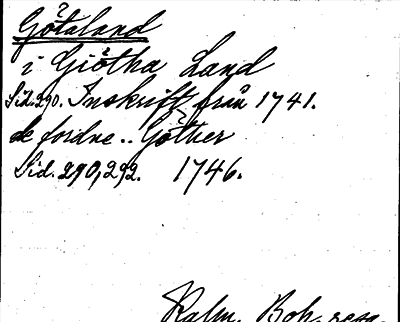 Götaland
i Giötha Land
Sid. 290. Inskrift från 1741.
de fordne.. Göther
Sid. 290, 292. 1746.
Kalm, Boh. resa.